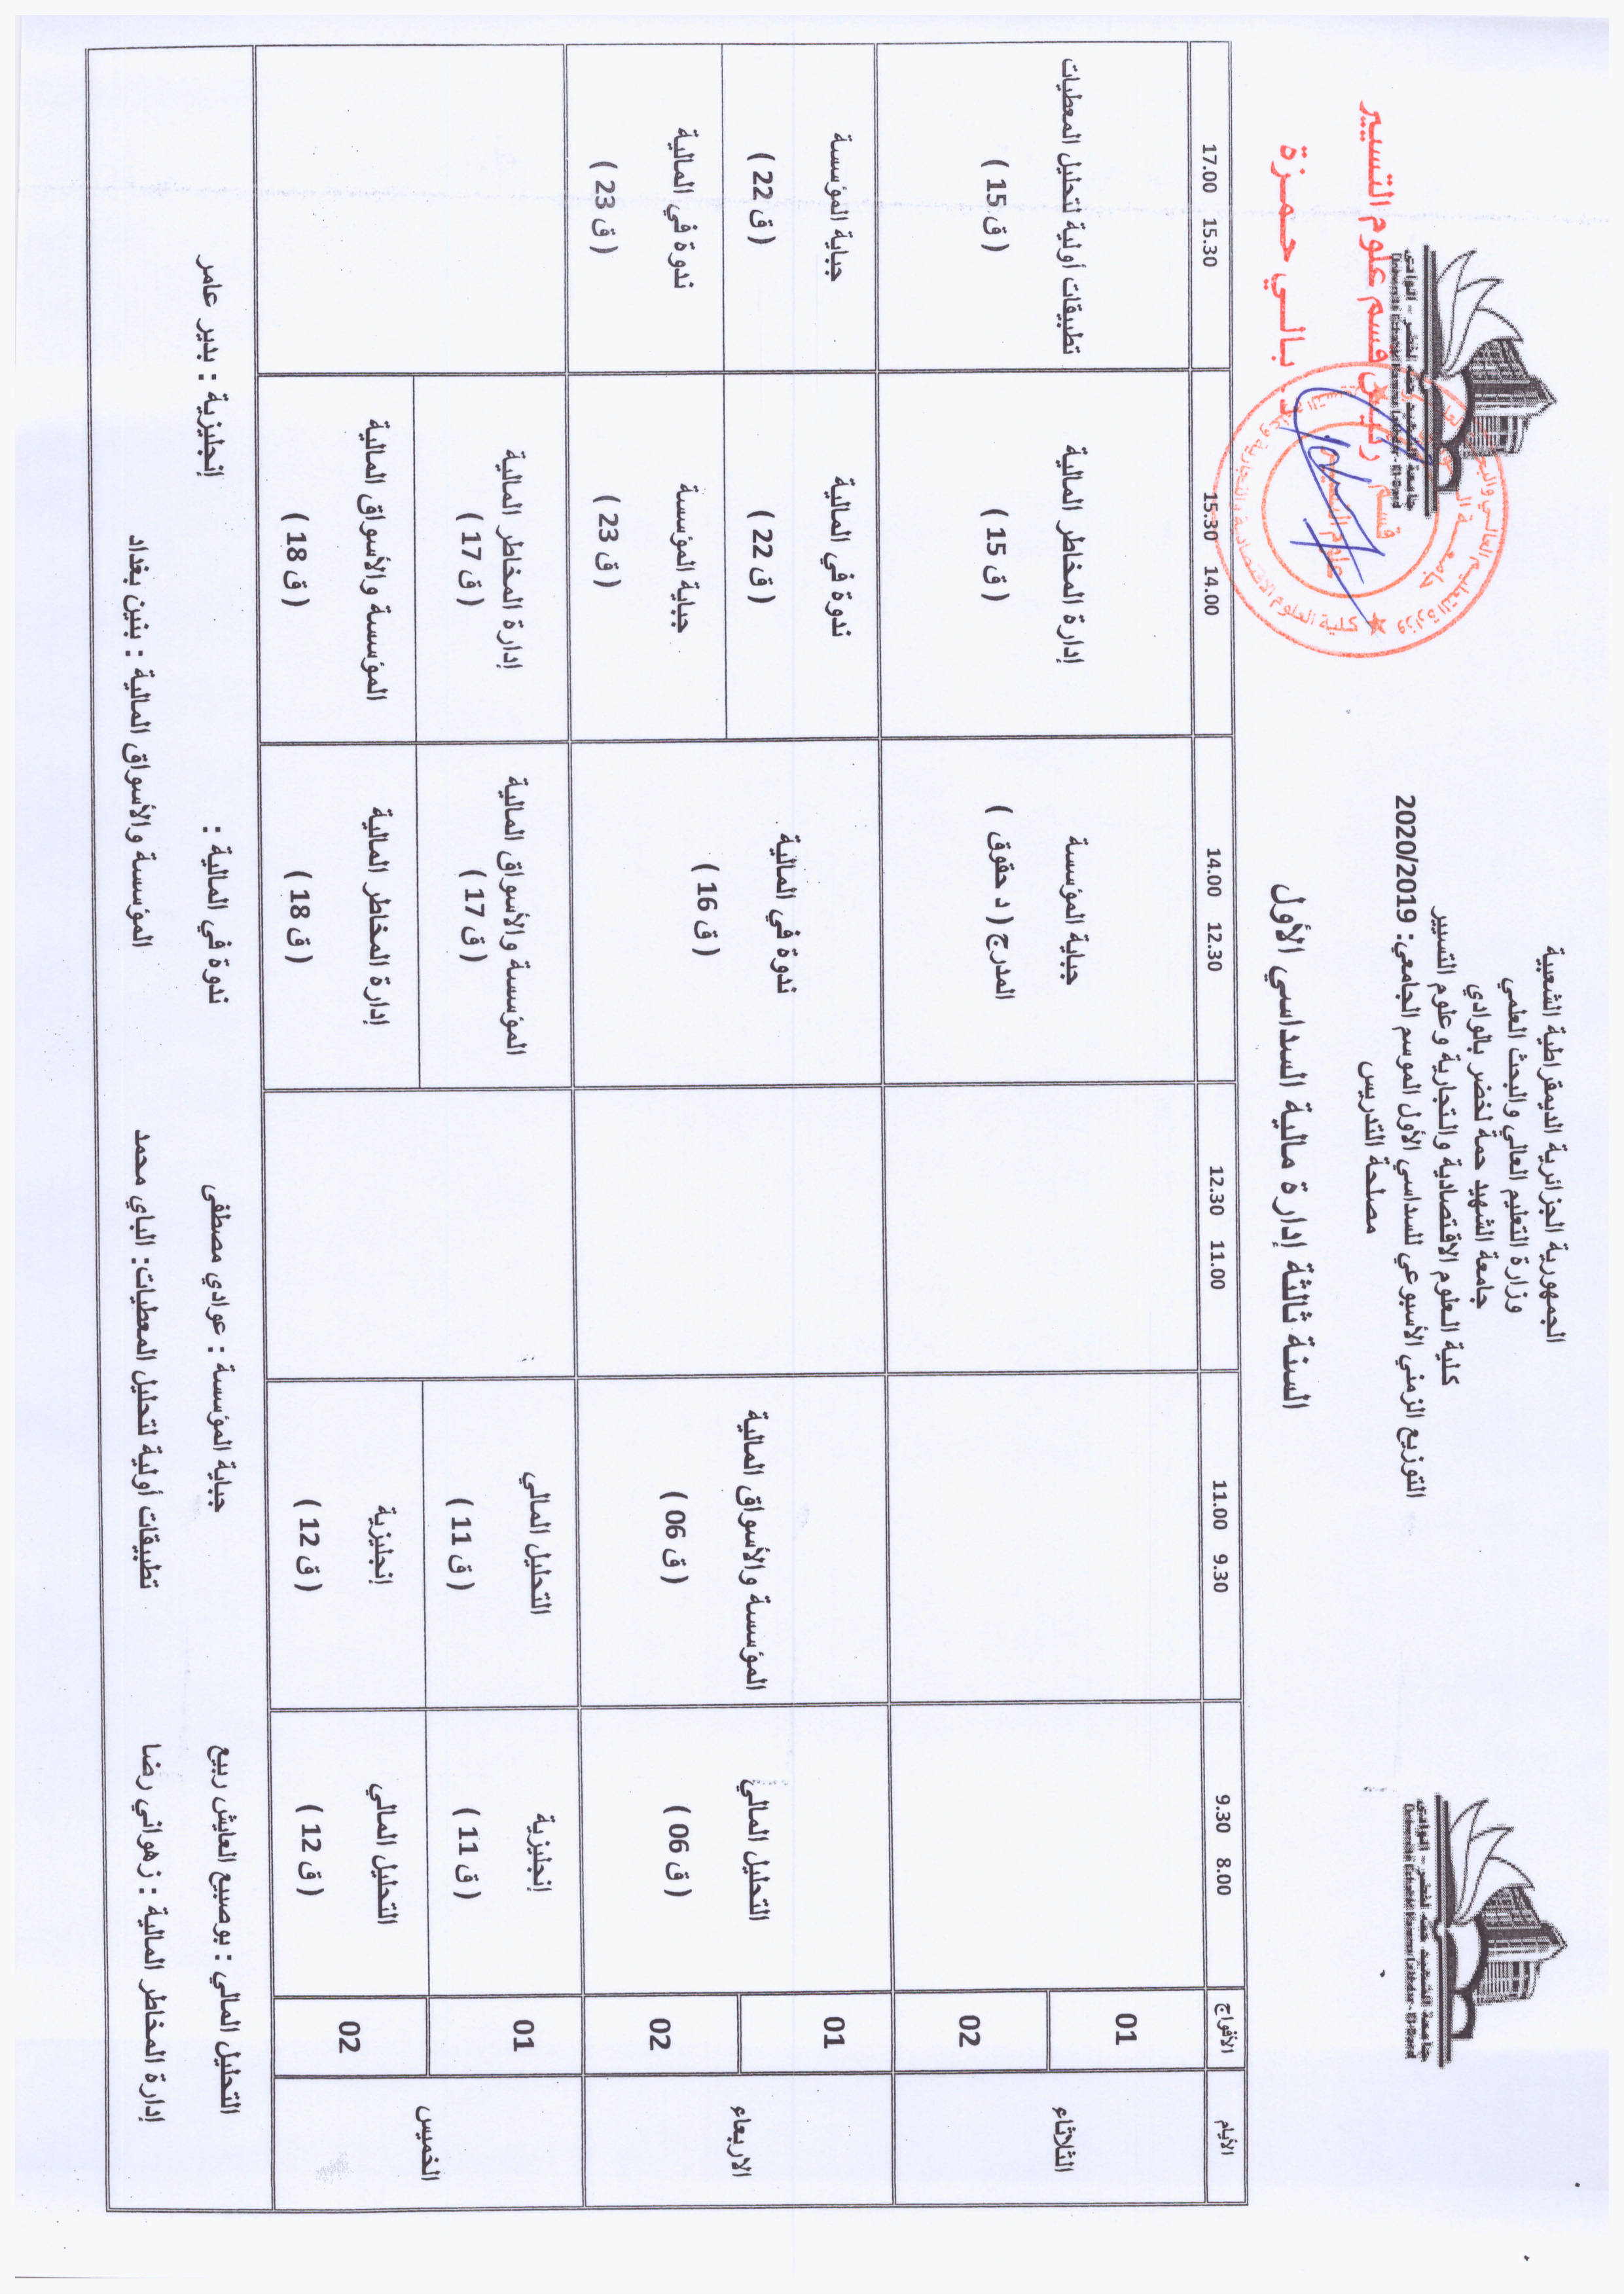 الجمهورية الجزائرية الديمقراطية الشعبية
وزارة التعليم العالي والبحث العلمي
جامعة الشهيد حمة لخضر بالوادي
كلية العلوم الاقتصادية والتجارية وعلوم التسيير
التوزيع الزمني الأسبوعي للسداسي الأول الموسم الجامعي: 2020/2019
مصلحة التدريس
جامعة الشهيد حمه لخضر - الوادي
Université Echahid Hamma Lakhdar - El-Oued
جامعة الشهيد حمه لخضر - الوادي
Université Echahid Hamma Lakhdar - El-Oued
رئيس قسم علوم التسيير
د. بالي حمزة
قسم
علوم التسيير
السنة ثالثة إدارة مالية السداسي الأول
الأيام الأفواج 8.00 9.30 9.30 11.00 11.00 12.30 12.30 14.00 14.00 15.30 15.30 17.00
الثلاثاء
01
02
جباية المؤسسة
المدرج ( د حقوق )
إدارة المخاطر المالية
( ق 15 )
تطبيقات أولية لتحليل المعطيات
( ق 15 )
الاربعاء
01
02
التحليل المالي
( ق 06 )
المؤسسة والأسواق المالية
( ق 06 )
ندوة في المالية
( ق 16 )
ندوة في المالية
( ق 22 )
جباية المؤسسة
( ق 22 )
جباية المؤسسة
( ق 23 )
ندوة في المالية
( ق 23 )
الخميس
01
إنجليزية
( ق 11 )
التحليل المالي
( ق 11 )
المؤسسة والأسواق المالية
( ق 17 )
إدارة المخاطر المالية
( ق 17 )
02
التحليل المالي
( ق 12 )
إنجليزية
( ق 12 )
إدارة المخاطر المالية
( ق 18 )
المؤسسة والأسواق المالية
( ق 18 )
التحليل المالي : بوصبيع العايش ربيع جباية المؤسسة : عوادي مصطفى ندوة في المالية : إنجليزية : بدير عامر
إدارة المخاطر المالية : زهواني رضا تطبيقات أولية لتحليل المعطيات: الباي محمد المؤسسة والأسواق المالية : بنين بغداد